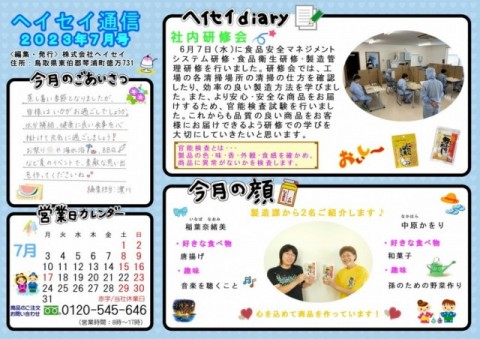 ヘイセイ通信
2023年7月号
〈編集・発行〉株式会社ヘイセイ
住所 鳥取県東伯郡琴浦町徳万731
今月のごあいさつ
蒸し暑い季節となりましたが、
皆様はいかがお過ごしでしょうか。
水分補給、健康に良い食事を心
掛けて元気に過ごしましょう!!
お祭り 海水浴 BBQ
など夏のイベントで、素敵な思い出
を作ってくださいね
編集担当
営業日カレンダー
7月
月 火 水 木 金 土 日
1 2
3 4 5 6 7 8 9
10 11 12 13 14 15 16
17 18 19 20 21 22 23
24 25 26 27 28 29 30
31
赤字/当社休業日
商品のご注文
お問い合わせ
0120-545-646
(営業時間：8時～17時)
ヘイセイdiary
社内研修会
6月7日(水)に食品安全マネジメント
システム研修・食品衛生研修・製造管
理研修を行いました。研修会では、工
場の各清掃場所の清掃の仕方を確認
したり、効率の良い製造方法を学びまし
た。また、より安心・安全な商品をお届
けするため、官能検査試験を行いまし
た。これからも品質の良い商品をお客
様にお届けできるよう研修での学びを
大切にしていきたいと思います。
官能検査とは…
製品の色・味・香・外観・食感を確かめ、
商品に異常がないかを検査します。
おいし～
今月の顔
製造課から2名ご紹介します♪
いなば なおみ
稲葉奈緒美
・好きな食べ物
唐揚げ
・趣味
音楽を聴くこと
なかはら
中原かをり
・好きな食べ物
和菓子
・趣味
孫のための野菜作り
心を込めて商品を作っています！